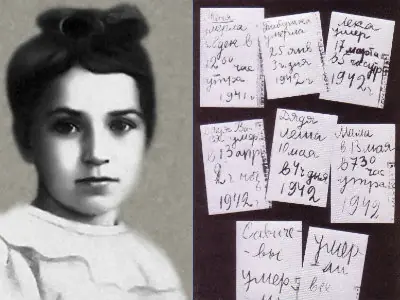 Женя
умерла
12 00 час
утра
1941 г
Бабушка
умерла
25 янв
3 ч. дня
1942 г
Лека
умер
17 марта
1942 г
умер
в 13 апр
2 ч ноч
1942 г
Дядя
Леша
10 мая
в 4 ч дня
1942
Мама
в 13 мая
в 7 30
час
утра
1942
Савиче-
вы
умер-
Умер
ли
все